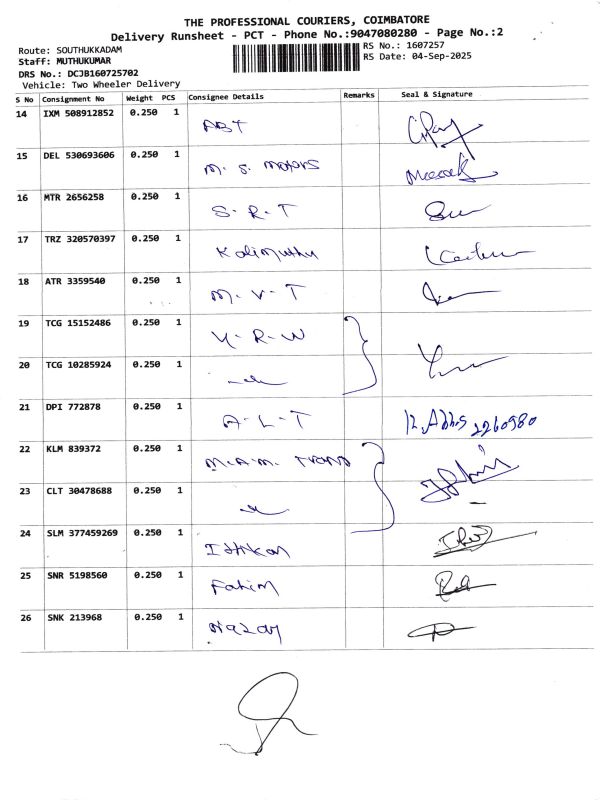 THE PROFESSIONAL COURIERS, COIMBATORE
Delivery Runsheet - PCT - Phone No.:9047080280 - Page No.:2
Route: SOUTHUKKADAM
RS No.: 1607257
Staff: MUTHUKUMAR
RS Date: 04-Sep-2025
DRS No.: DCJB160725702
Vehicle: Two Wheeler Delivery
S No Consignment No Weight PCS Consignee Details Remarks Seal & Signature
14 IXM 508912852 0.250 1 ABT
15 DEL 530693606 0.250 1 M. S. Motors
16 MTR 2656258 0.250 1 S. R. T
17 TRZ 320570397 0.250 1 Kalimuthu
18 ATR 3359540 0.250 1 M. V. T
19 TCG 15152486 0.250 1 Y. R. W
20 TCG 10285924 0.250 1
21 DPI 772878 0.250 1 A. L. T
22 KLM 839372 0.250 1 M.A.M.
23 CLT 30478688 0.250 1
24 SLM 377459269 0.250 1
25 SNR 5198560 0.250 1 Fahim
26 SNK 213968 0.250 1